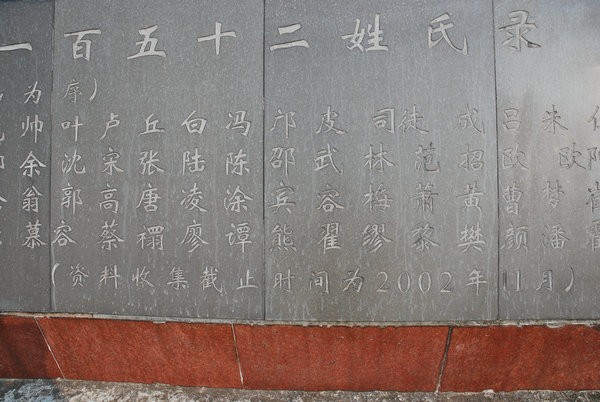 一百五十二姓氏录
为序）
帅叶卢丘白冯邝皮司徒成吕朱
余沈宋张陆陈邵武林范招欧欧
翁郭高唐凌涂宾容梅萧黄曹梦崔
慕容蔡禤廖谭熊翟缪黎樊颜潘霍
（资料收集截止时间为2002年11月）